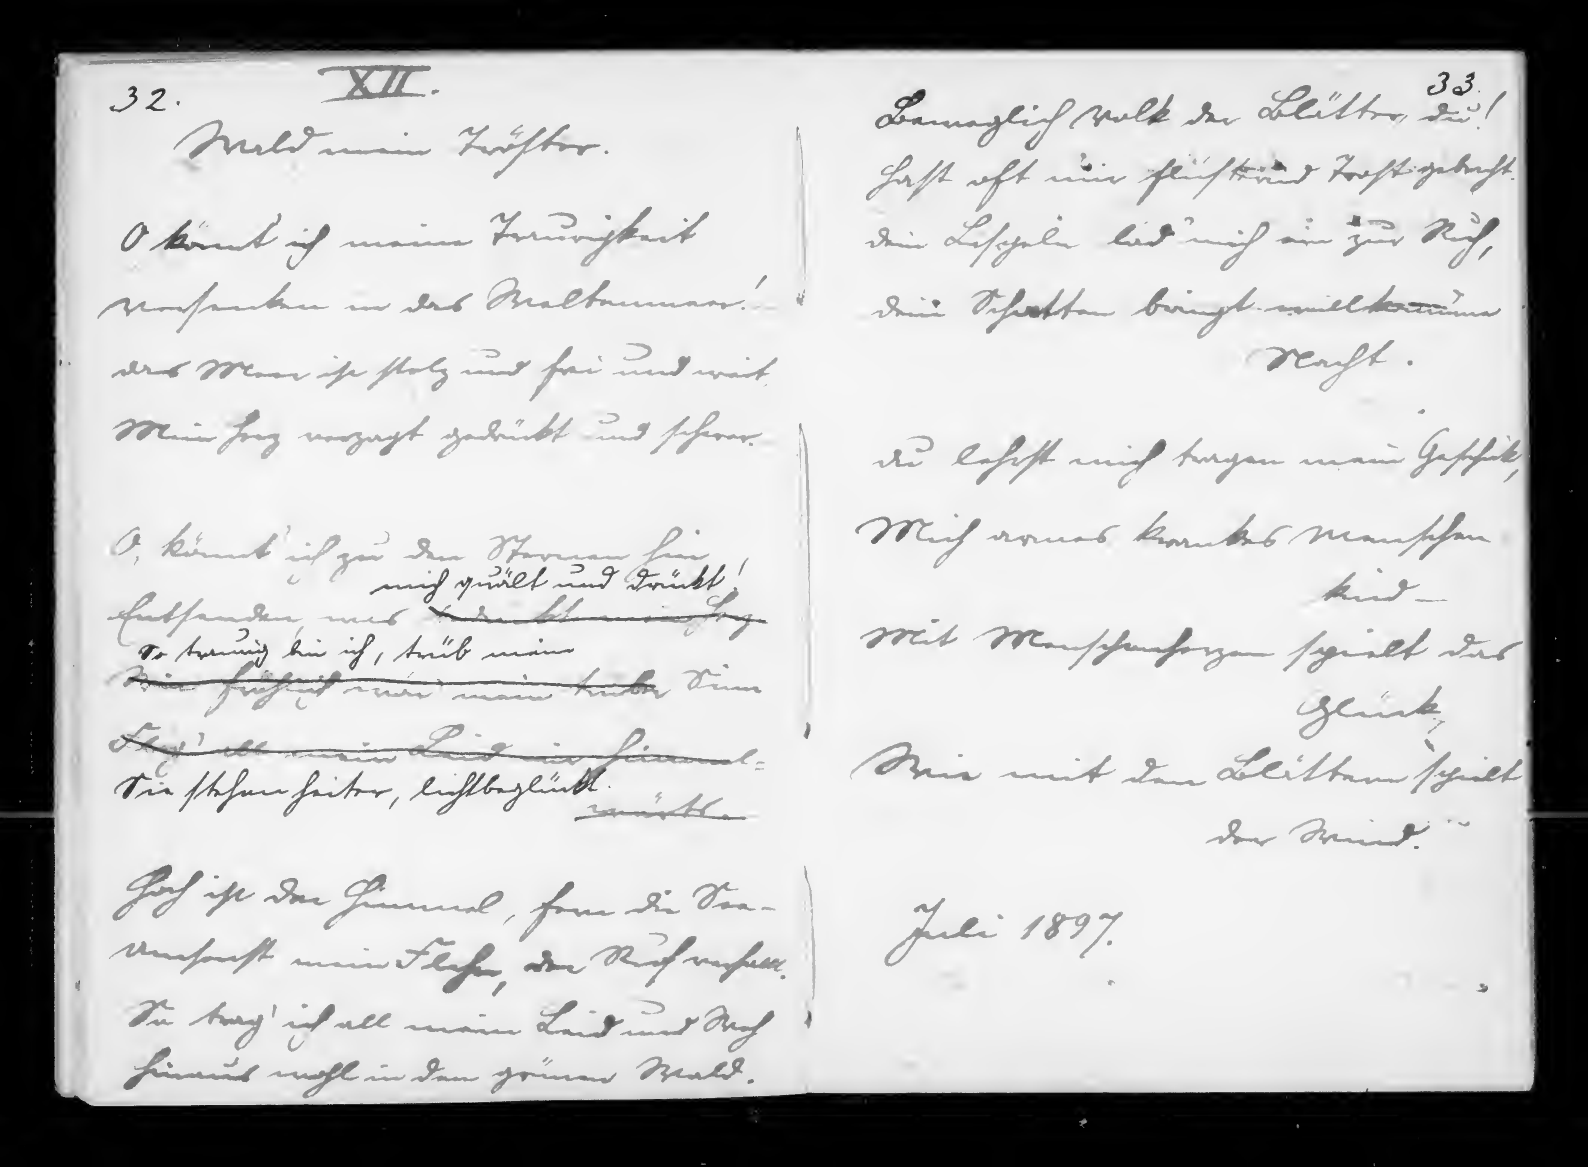 32.
XII.
Wald mein Tröster.
O könnt' ich meine Traurigkeit
versenken in das Weltenmeer!
das Meer ist stolz und frei und weit
Mein Herz verzagt gedrückt und schwer.
O, könnt' ich zu den Sternen hin
mich quält und drückt!
Entsenden, was bedrückt mein Herz
So traurig bin ich, trüb mein
Wie fröhlich wär' mein trüber Sinn
Flög' all mein Leid im himmel=
Sie stehen heiter, lichtbeglückt.
wärts.
Hoch ist der Himmel, fern die See-
Umsonst mein Flehen, der Ruf verhallt.
So trag' ich all mein Leid und Weh
hinaus wohl in den grünen Wald.
33.
Beweglich Volk der Blätter, du!
hast oft mir flüsternd Trost gebracht.
dein Lispeln lud mich ein zur Ruh,
dein Schatten bringt willkomme
Nacht.
du lehrst mich tragen mein Geschick,
Mich armes krankes Menschen
kind —
Mit Menschenherzen spielt das
Glück,
Wie mit den Blättern spielt
der Wind.
Juli 1897.